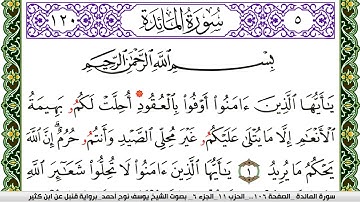 ٥ سُورَةُ المَائِدَةِ ١٢٠
بِسْمِ اللَّهِ الرَّحْمَٰنِ الرَّحِيمِ
يَٰٓأَيُّهَا الَّذِينَ ءَامَنُوٓا أَوْفُوا بِالْعُقُودِ أُحِلَّتْ لَكُمُۥ بَهِيمَةُ
الْأَنْعَٰمِ إِلَّا مَا يُتْلَىٰ عَلَيْكُمُۥ غَيْرَ مُحِلِّي الصَّيْدِ وَأَنتُمُۥ حُرُمٌ إِنَّ اللَّهَ
يَحْكُمُ مَا يُرِيدُ ١ يَٰٓأَيُّهَا الَّذِينَ ءَامَنُوا لَا تُحِلُّوا شَعَٰٓئِرَ اللَّهِ
سورة المائدة _ الصفحة ١٠٦ ... الحزب ١١ الجزء ٦ _ بصوت الشيخ يوسف نوح أحمد _ برواية قنبل عن ابن كثير